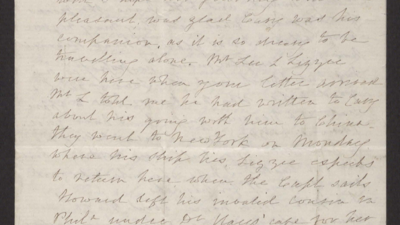 pleasant, was glad Cary was his
companion, as it is so dreary to be
travelling alone. Mr Lee & Lizzie
were here when your letter arrived
Mr L told me he had written to Cary
about his going with him to China.
They went to New York on Monday
where his ship lies, Lizzie expects
to return here when the Capt sails
Howard left his invalid cousin in
Phila under Dr care for her